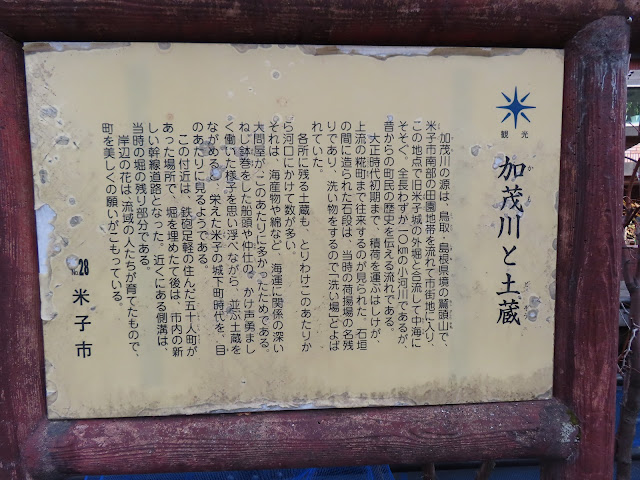 観光
加茂川と土蔵
加茂川の源は、鳥取・島根県境の鷲頭山で、
米子市南部の田園地帯を流れて市街地に入り、
この地点で旧米子城の外堀と合流して中海に
そそぐ、全長わずか一〇㎞の小河川であるが、
昔からの町民の歴史を伝える流れである。
大正時代初期まで、積荷を運ぶはしけが、
上流の糀町まで往来するのが見られた。石垣
の間に造られた石段は、当時の荷揚場の名残
りであり、洗い物をするので「洗い場」とよば
れていた。
各所に残る土蔵も、とりわけこのあたりか
ら河口にかけて数が多い。
それは、海産物や綿など、海運に関係の深い
大問屋が、このあたりに多かったためである。
ねじ鉢巻をした船頭や仲仕の、かけ声勇まし
く働いた様子を思い浮べながら、並ぶ土蔵を
ながめると、栄えた米子の城下町時代を、目
のあたりに見るようである。
この付近は、鉄砲足軽の住んだ五十人町が
あった場所で、堀を埋めたて後は、市内の新
しい幹線道路となった。近くにある側溝は、
当時の堀の残り部分である。
岸辺の花は、流域の人たちが育てたもので、
町を美しくの願いがこもっている。
No.28 米子市